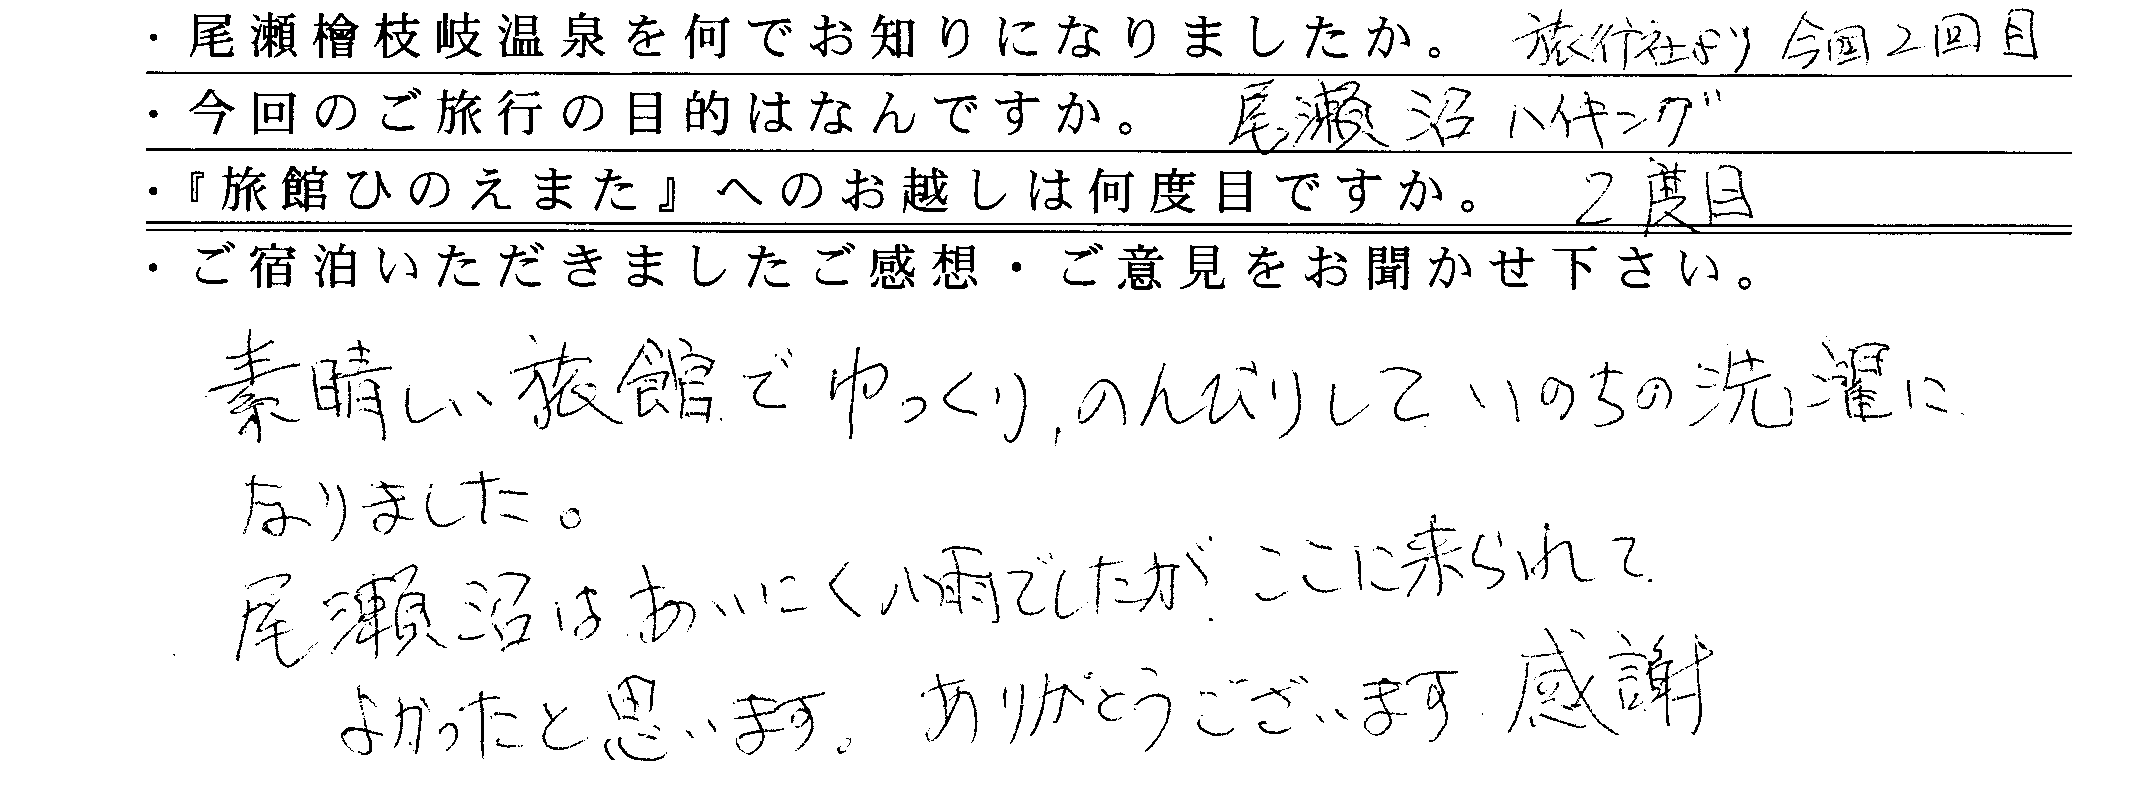 ・尾瀬檜枝岐温泉を何でお知りになりましたか。 旅行社より 今回2回目
・今回のご旅行の目的はなんですか。 尾瀬沼ハイキング
・『旅館ひのえまた』へのお越しは何度目ですか。 2度目
・ご宿泊いただきましたご感想・ご意見をお聞かせ下さい。
素晴しい旅館でゆっくり、のんびりしていのちの洗濯に
なりました。
尾瀬沼はあいにく小雨でしたが、ここに来られて
よかったと思います。ありがとうございます 感謝